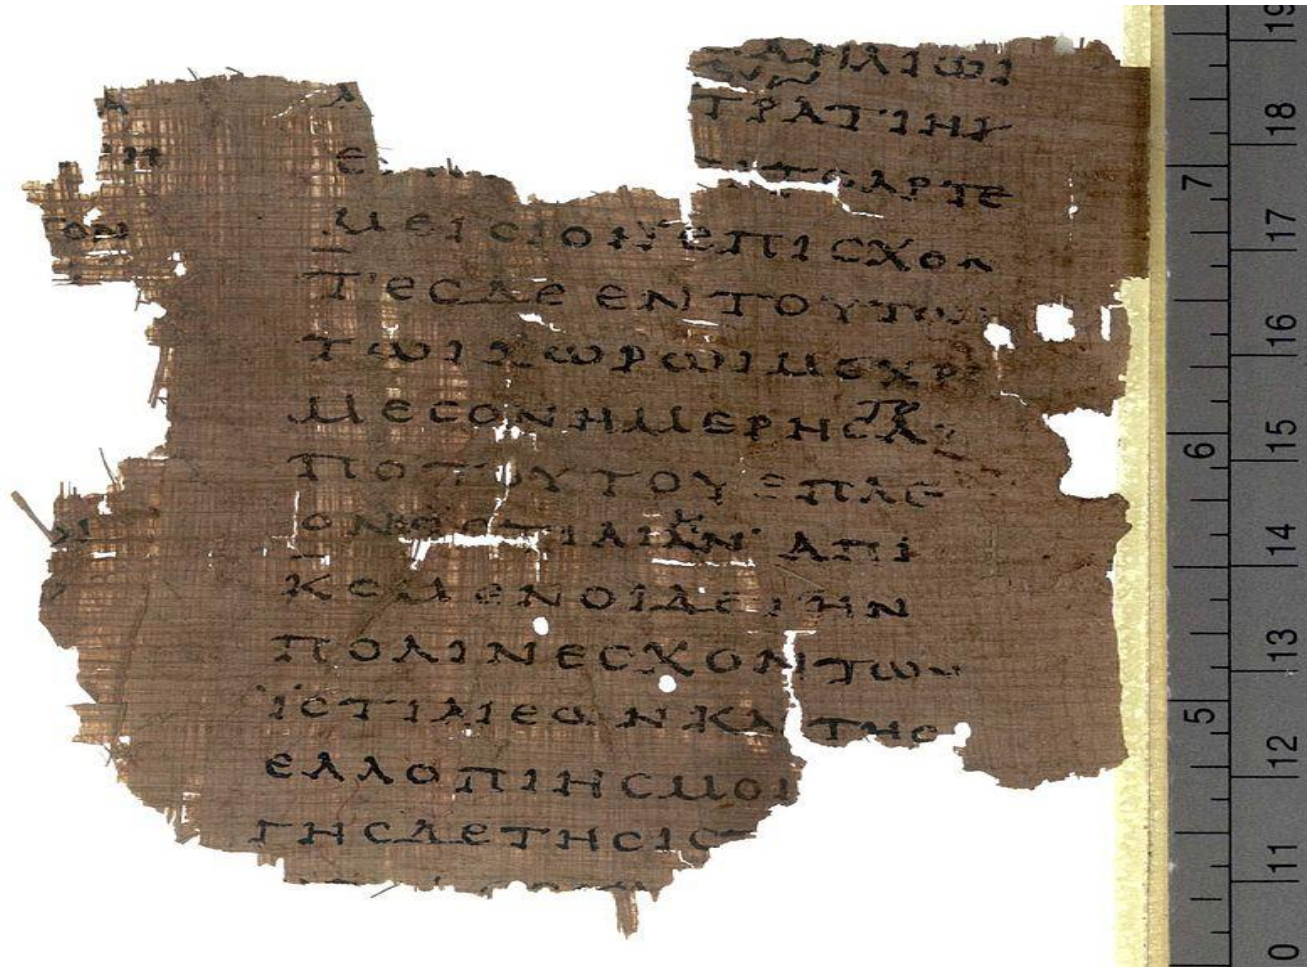 ΑΜΑΗΛΙΩΙ
ΤΡΑΤΙΗΙ
ΤΟΑΡΤΕ
ΤΟΝ
ΜΕΙCΙΟΝ ΕΠΙCΧΟΝ
ΤΕCΔΕ ΕΝ ΤΟΥΤΩΙ
ΤΩΙΧΩΡΩΙΜΕΧΡΙ
ΜΕCΟΝΗΜΕΡΗCΤΟΑ
ΠΟΤΟΥΤΟΥΕΠΛΕ
ΟΝΕCΙCΤΙΑΙΗΝ ΑΠΙ
ΚΟΜΕΝΟΙΔΕΤΗΝ
ΠΟΛΙΝΕCΧΟΝΤΩΝ
ΙCΤΙΑΙΕΩΝΚΑΙΤΗC
ΕΛΛΟΠΙΗCΜΟΙ
ΓΗCΔΕΤΗCΙCΤ
7
6
5
19
18
17
16
15
14
13
12
11
0